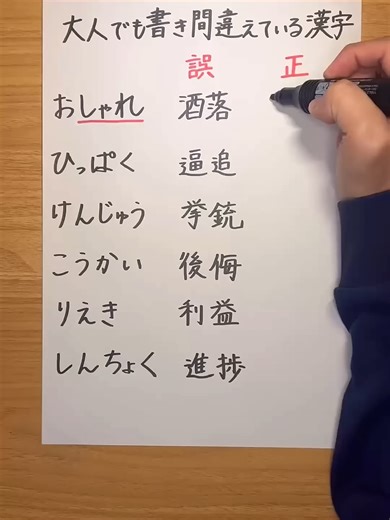 大人でも書き間違えている漢字
誤 正
おしゃれ 酒落
ひっぱく 逼追
けんじゅう 挙銃
こうかい 後侮
りえき 利益
しんちょく 進捗